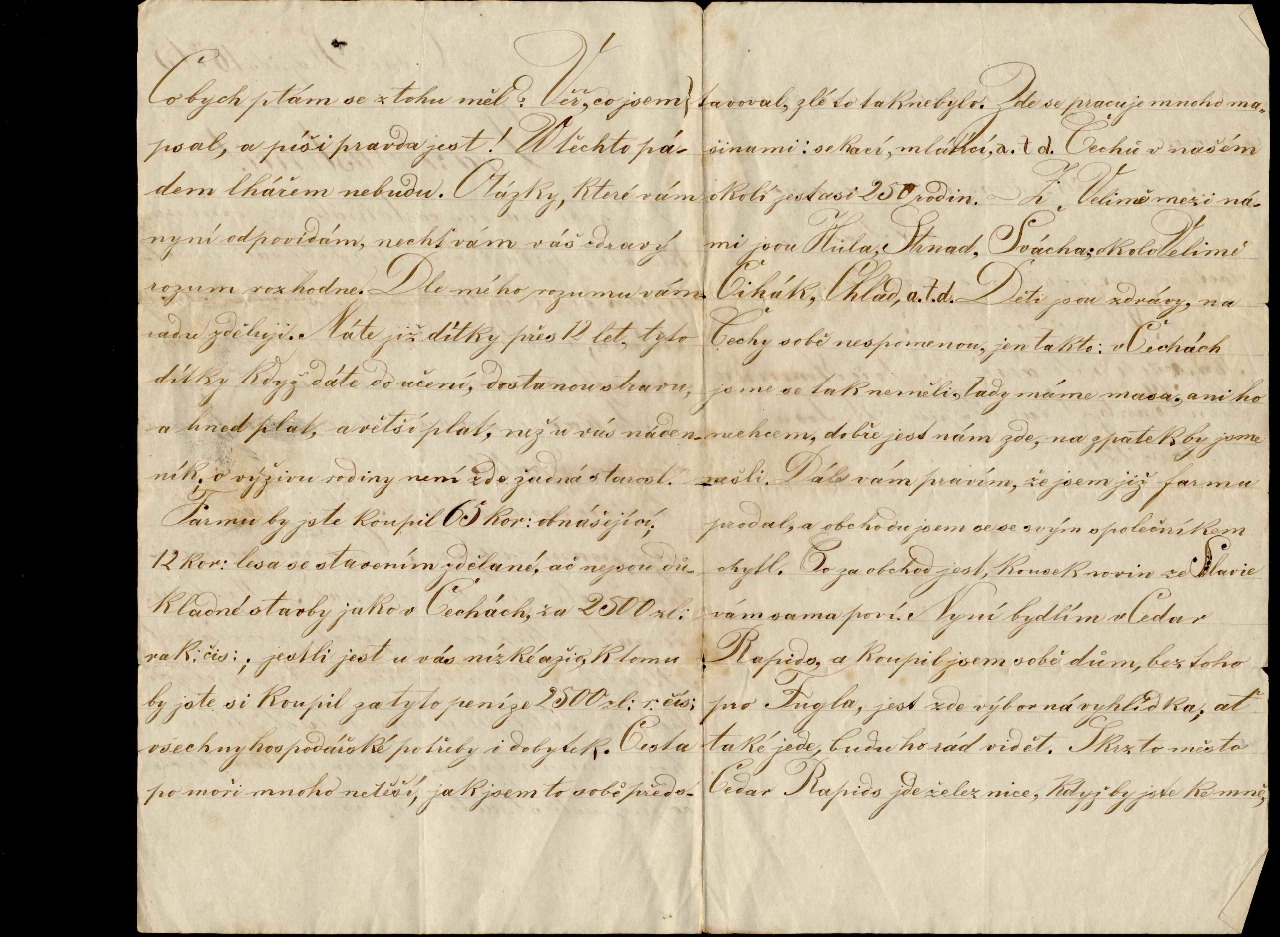 Co bych ptám se z tohu měl? Věř, co jsem
psal, a píši pravda jest! V těchto pá-
dem lhářem nebudu. Otázky, které vám
nyní odpovídám, nechť vám váš zdravý
rozum rozhodne. Dle mého rozumu vám
radu zděluji. Máte již dítky přes 12 let, tyto
dítky když dáte do učení, dostanou stravu,
a hned plat, a větší plat, než u vás náden-
ník, o výživu rodiny není zde žádná starost.
Farmu by jste koupil 65 kor: obnášející,
12 kor: lesa se stavením zdělané, ač nejsou dů-
kladné stavby jako v Čechách, za 2500 zl:
rak: čís:, jestli jest u vás nízké ažio, k tomu
by jste si koupil za tyto peníze 2500 zl: r: čís:
všechny hospodářské potřeby i dobytek. Cesta
po moři mnoho netěší, jak jsem to sobě předs-
tavoval, zlé to tak nebylo. Zde se pracuje mnoho ma-
šinami: sekací, mlátící, a. t. d. Čechů v našém
okolí jest asi 250 rodin. – Z Velimě mezi ná-
mi jsou Hula, Strnad, Svácha; okolo Velimě
Čihák, Chlad, a. t. d. Děti jsou zdrávy, na
Čechy sobě nespomenou, jen takto: v Čechách
jsme se tak neměli, tady máme masa, ani ho
nechcem, dobře jest nám zde, na zpátek by jsme
nešli. Dále vám pravím, že jsem již farmu
prodal, a obchodu jsem se se svým společníkem
chytl. Co za obchod jest, kousek novin ze Slavie
vám sama poví. Nyní bydlím v Cedar
Rapids, a koupil jsem sobě dům, bez toho
pro Fugla, jest zde výborná vyhlídka, ať
také jede, budu ho rád vidět. Skrz to město
Cedar Rapids jde železnice, když by jste ke mně,